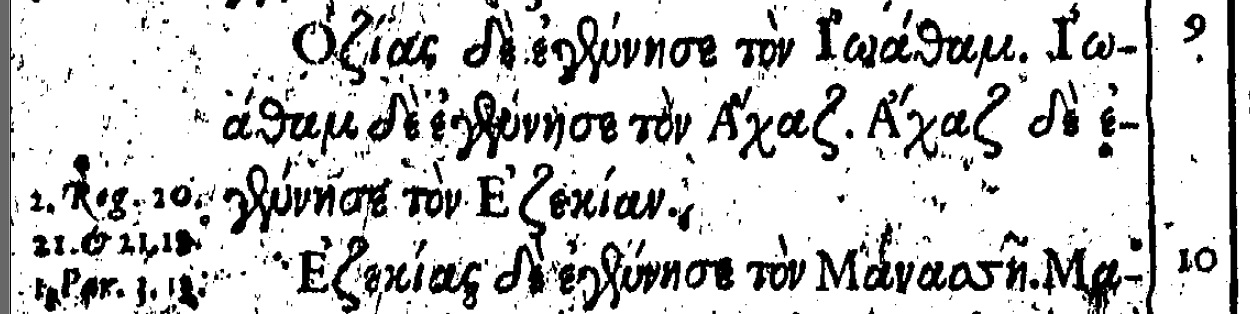 Ὀζίας δὲ ἐγέννησε τὸν Ἰωάθαμ. Ἰω- 9
άθαμ δὲ ἐγέννησε τὸν Ἄχαζ. Ἄχαζ δὲ ἐ-
2. Reg. 20. γέννησε τὸν Ἐζεκίαν.
21. & 21.18.
Ἐζεκίας δὲ ἐγέννησε τὸν Μάνασσῆ. Μα- 10
1. Par. 3. 13.